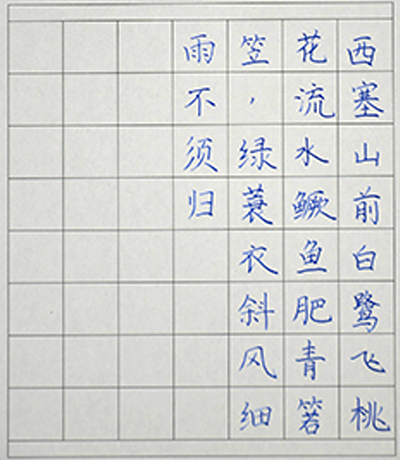 西塞山前白鹭飞桃
花流水鳜鱼肥青箬
笠，绿蓑衣斜风细
雨不须归